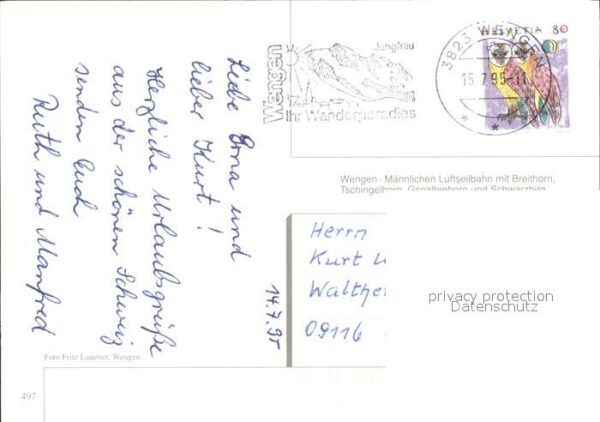 Liebe Erna und
lieber Kurt!
Herzliche Urlaubsgrüße
aus der schönen Schweiz
senden Euch
Ruth und Manfred
14.7.95
Wengen
Jungfrau
Ihr Wanderparadies
3823 WENGEN
15.7.95-11
HELVETIA 80
Wengen - Männlichen Luftseilbahn mit Breithorn,
Tschingelhorn, Gspaltenhorn und Schwarzbirg
Herrn
Kurt
09116
privacy protection
Datenschutz
Foto Fritz Lauener, Wengen
497